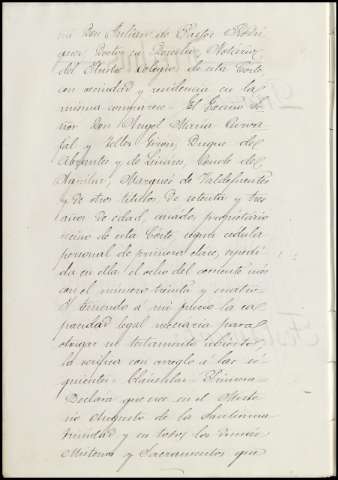 mi Don Julian de Pastor Rodri
guez Doctor en Derecho Notario
del Ilustre Colegio de esta Corte
con vecindad y residencia en la
misma comparece = El Excmo Se
ñor Don Angel Maria Carva
jal y Tellez Giron, Duque de
Abrantes y de Linares, Conde de
Aguilar, Marques de Valdefuentes
y de otros titulos, de setenta y tres
años de edad, casado, propietario
vecino de esta Corte, segun cedula
personal de primera clase, espedi
da en ella el ocho del corriente mes
con el numero treinta y cuatro
Y teniendo á mi juicio la ca
pacidad legal necesaria para
otorgar su testamento abierto
lo verifica con arreglo á las si
guientes Clausulas = Primera =
Declara que cree en el Miste
rio Augusto de la Santisima
trinidad y en todos los demas
Misterios y Sacramentos que